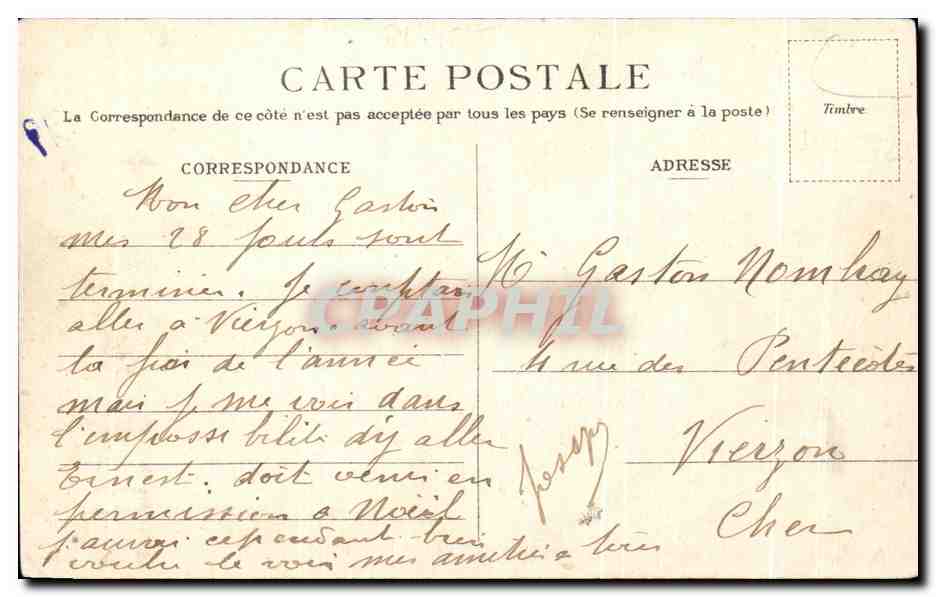 CARTE POSTALE
La Correspondance de ce côté n'est pas acceptée par tous les pays (Se renseigner à la poste)
Timbre
CORRESPONDANCE
Mon cher Gaston
mes 28 jours sont
terminés. Je comptais
aller à Vierzon avant
la fin de l'année
mais je me vois dans
l'impossibilité d'y aller
Ernest. doit venir en
permission à Noël
j'aurai cependant bien
voulu le voir mes amitiés à tous
ADRESSE
Mr Gaston
4 rue des
Vierzon
Cher
CPAPHIL